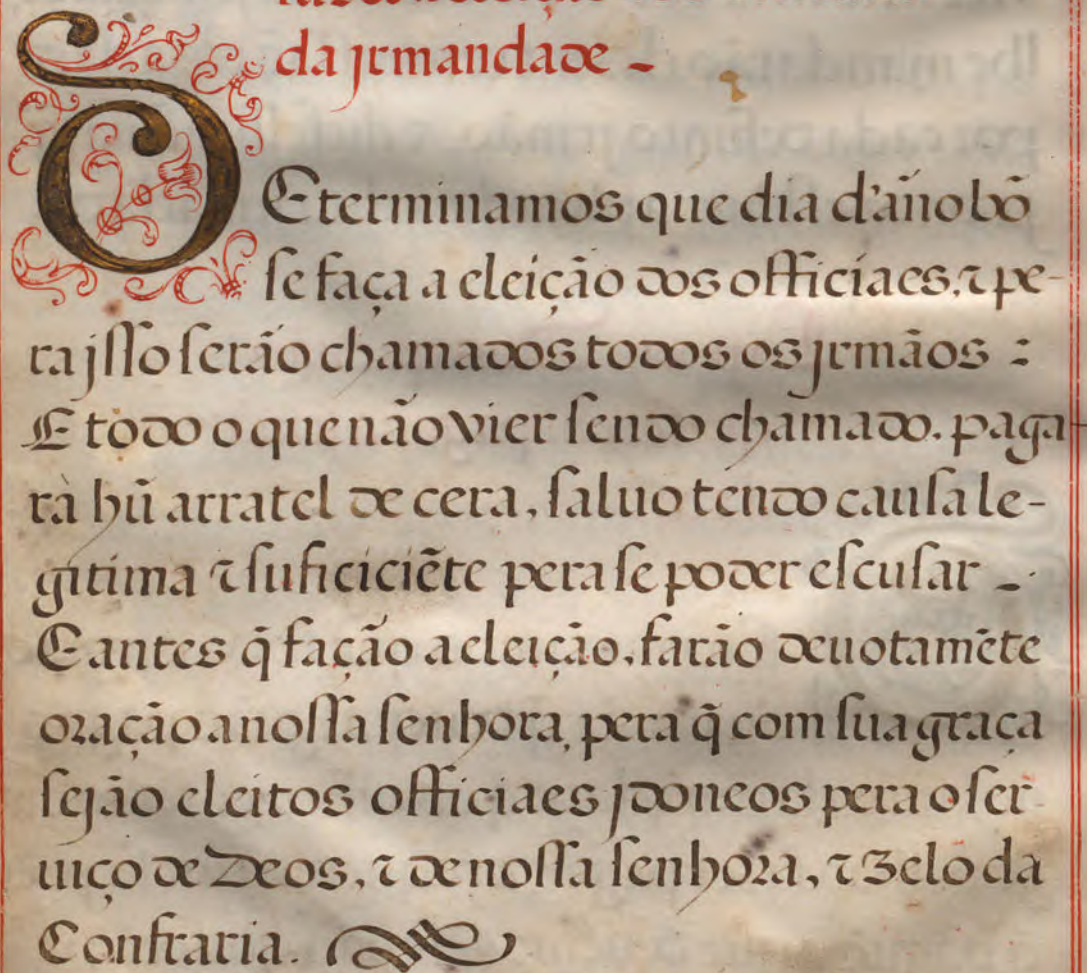 da jrmandade -
DEterminamos que dia d'año bõ
se faça a eleição dos officiaes, ⁊ pe-
ra jsso serão chamados todos os jrmãos :
E todo o que não vier sendo chamado. paga
rà hũ arratel de cera, saluo tendo causa le-
gitima ⁊ suficiciẽte pera se poder escusar -.
E antes q̃ fação a eleição, farão deuotamẽte
oração a nossa senhora, pera q̃ com sua graça
sejão eleitos officiaes jdoneos pera o ser
uiço de Deos, ⁊ de nossa senhora, ⁊ zelo da
Confraria.